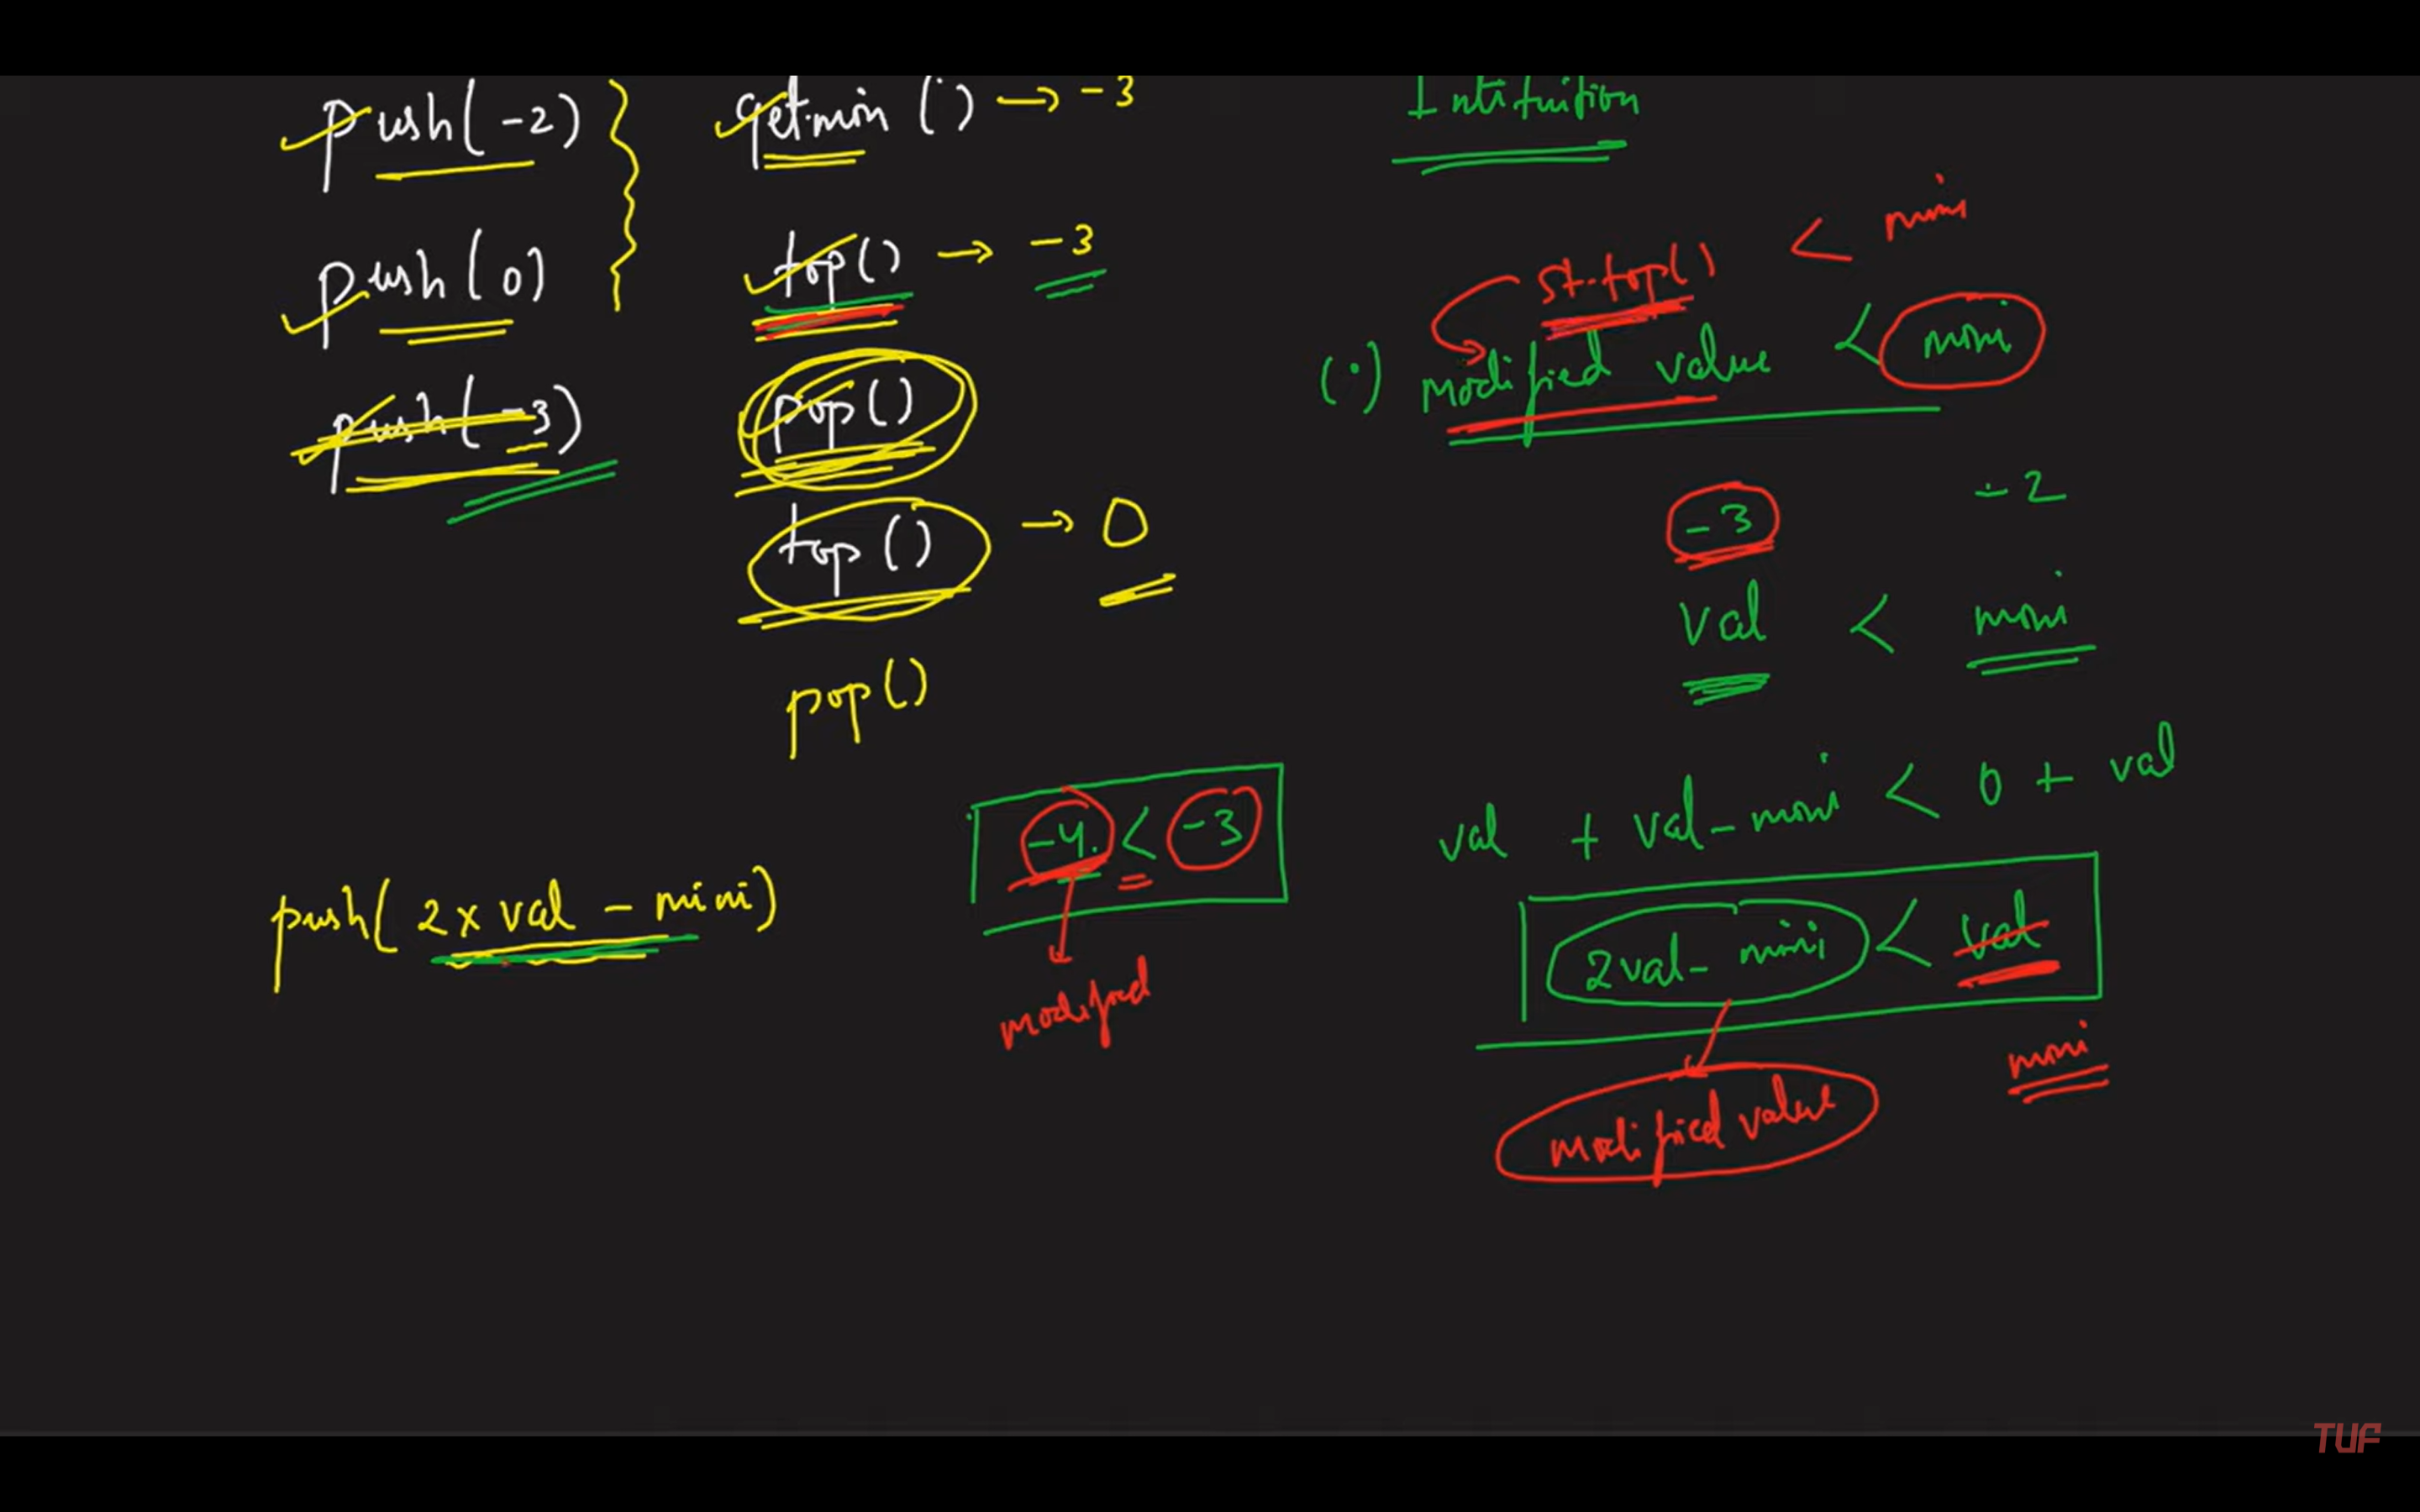 push(-2)
push(0)
push(-3)
getmin() → -3
top() → -3
pop()
top() → 0
pop()
push(2 x val - mini)
-4. < -3
modified
Intituition
st.top() < mini
(•) modified value < mini
-3 -2
val < mini
val + val - mini < 0 + val
2val - mini < val
modified value
mini
TUF